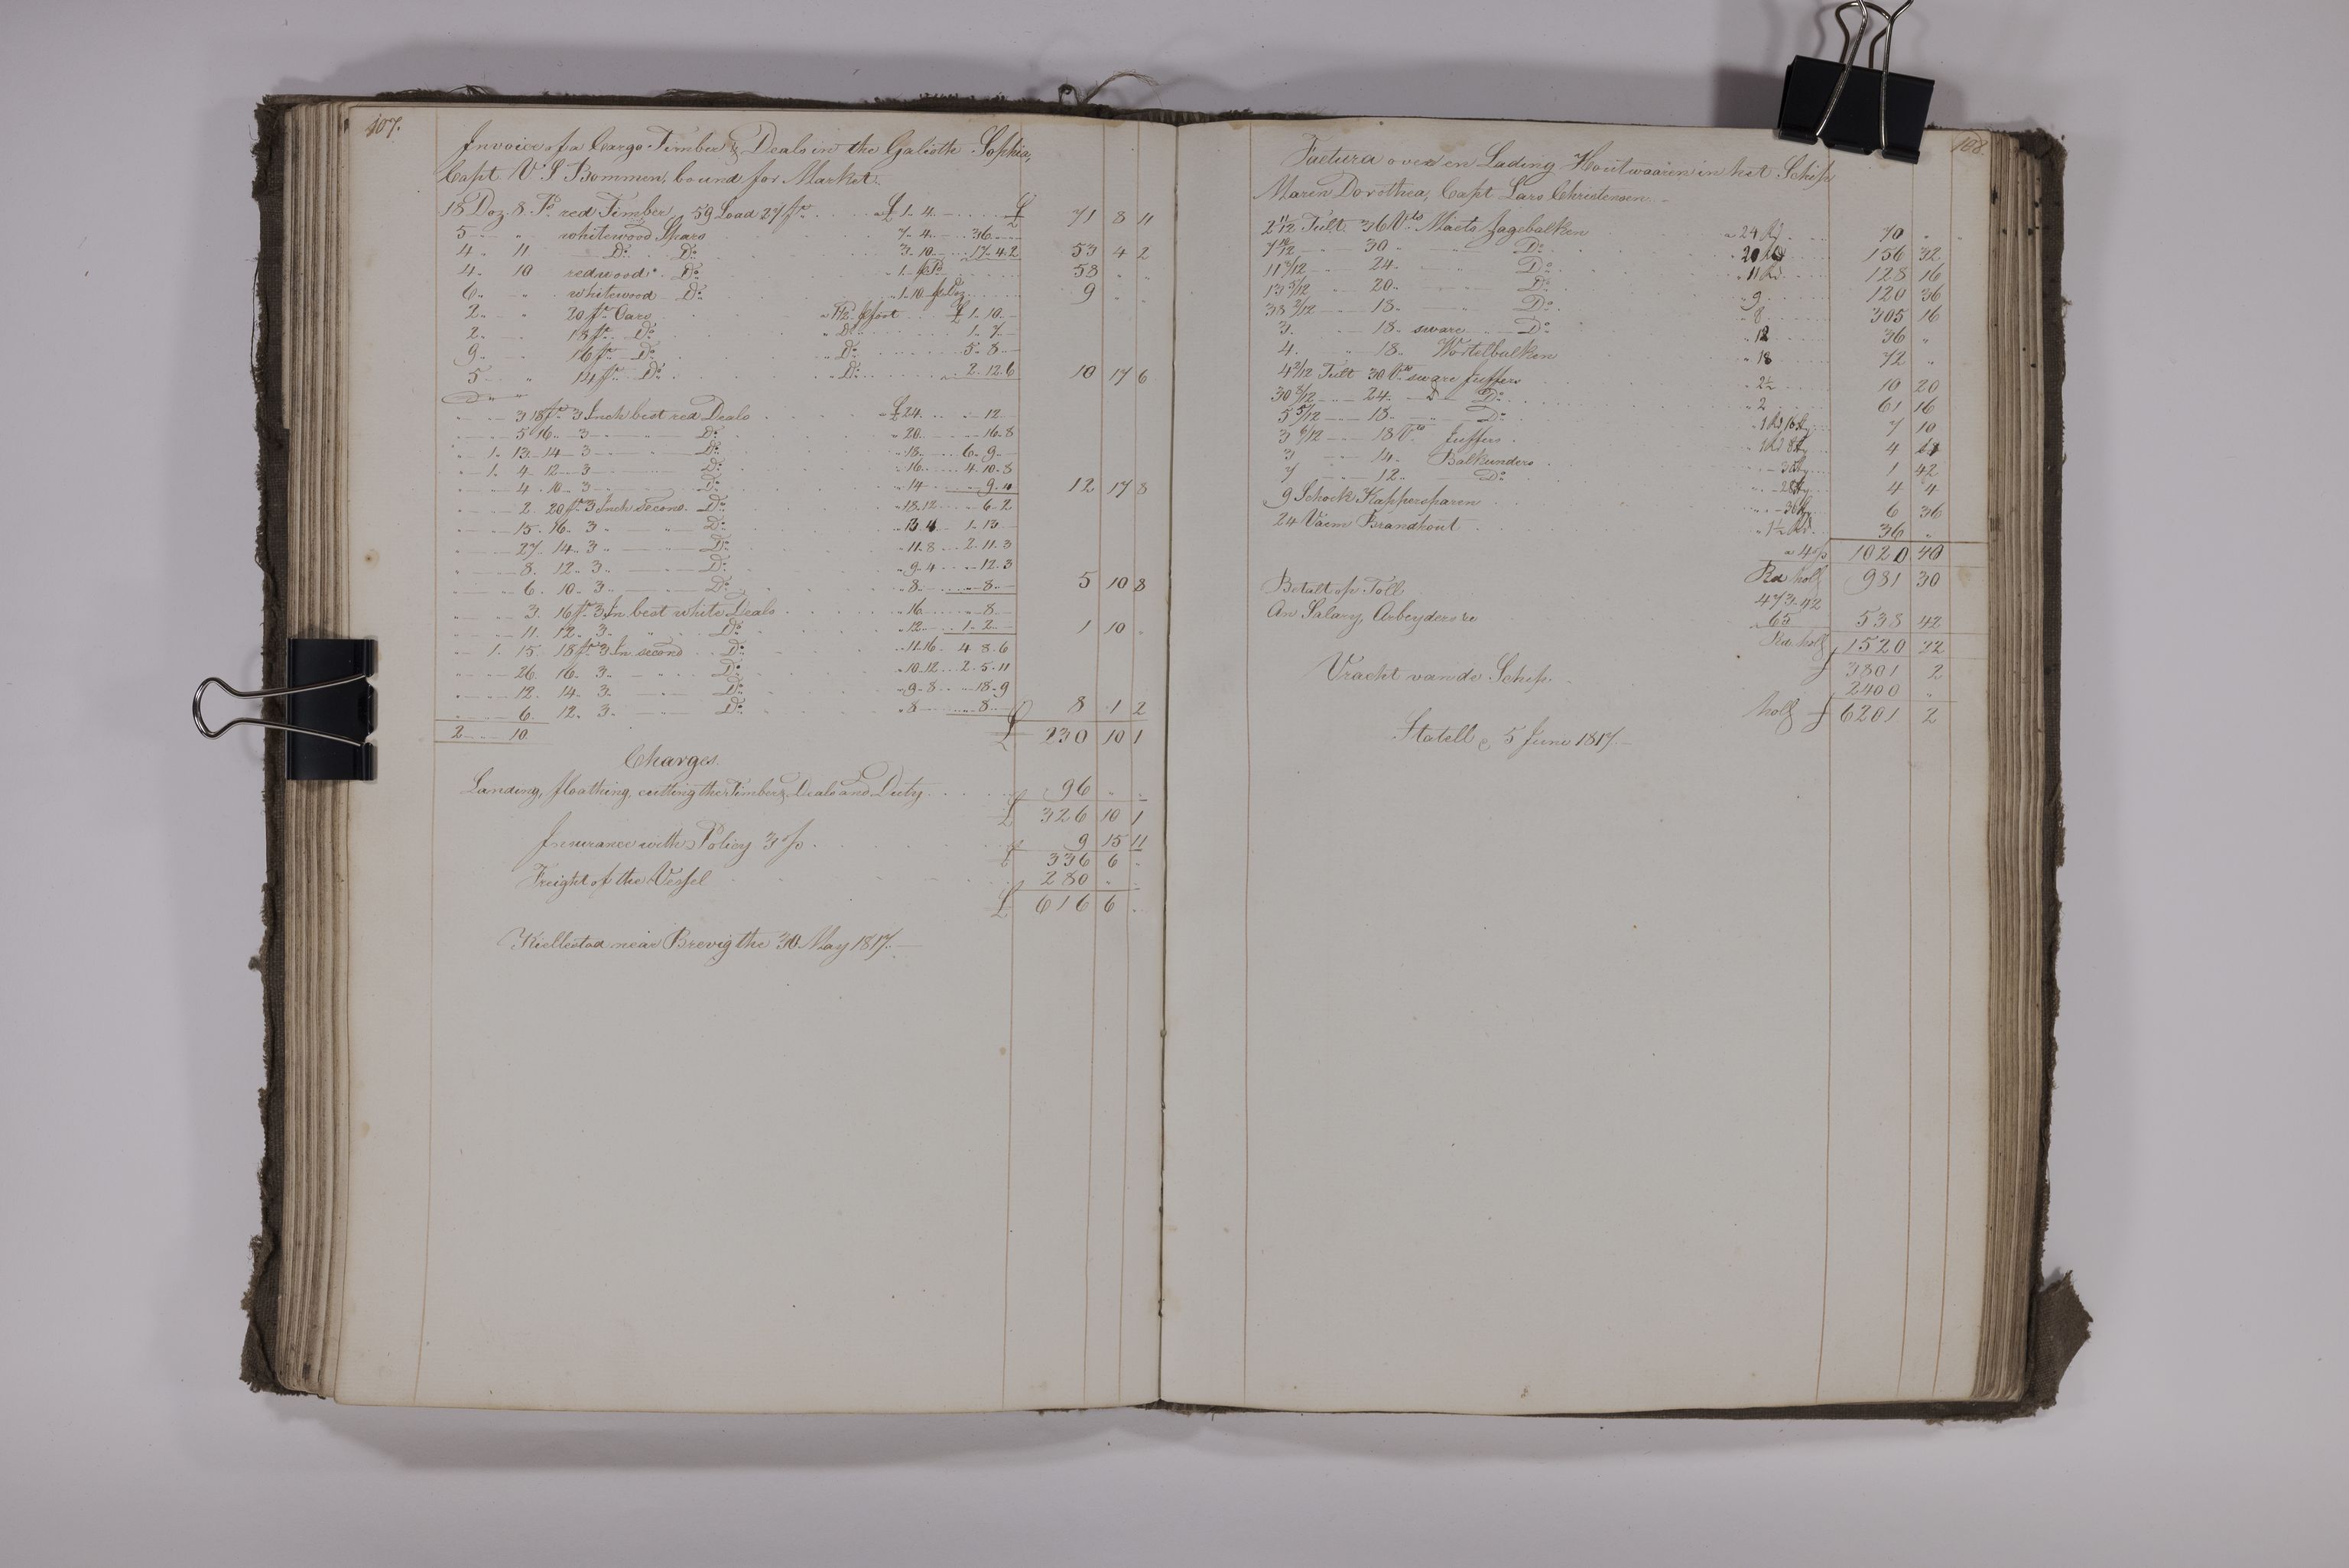 107.
Invoice of a Cargo Timber & Deals in the Galioth Sophia,
Capt. V. S. Bommen, bound for Market.
18 Doz 8 Ps. red Timber, 59 Load 27 ft. a £ 1. 4. £ 71 8 11
5 " whitewood Spars 7. 4. 36.
4 11 Do. Do. 3. 10. 17. 4. 2 53 4 2
4. 10 redwood Do. " 1. 58 " "
6 " whitewood Do. " 1. 10 p Doz. 9 " "
2 " 20 ft. Oars a 1½ p foot £ 1. 10.
2 " 18 ft. Do. " Do. 1. 7.
9 16 ft. Do. " Do. 5. 8
5 " 14 ft. Do. Do. 2. 12. 6 10 17 6
3 18 ft. 3 Inch best red Deals a £ 24. 12.
5 16 3 Do. " 20. 16. 8
1. 13. 14 3 Do. " 18. 6. 9.
1. 4. 12 3 Do. " 16. 4. 10. 8
4. 10. 3 Do. " 14 9. 4 12 17 8
2. 20 ft. 3 Inch second Do. " 18. 12 6. 2
15. 16. 3 Do. " 13 4 1. 13
27. 14. 3 Do. " 11. 8 2. 11. 3
8. 12. 3 Do. " 9. 4 12. 3
6. 10. 3 Do. " 8 8 5 10 8
3. 16 ft. 3 In best white Deals " 16 8
11. 12. 3. Do. " 12 1. 2 1 10 "
1. 15. 18 ft. 3 In second Do. " 11. 16. 4. 8. 6
26. 16. 3 Do. " 10. 12. 2. 5. 11
12. 14. 3 Do. " 9. 8 18. 9
6. 12. 3. Do. " 8 8 8 1 2
2 10 £ 230 10 1
Charges.
Landing, floathing, cutting the Timber & Deals and Duty 96 " "
£ 326 10 1
Insurance with Policy 3 % 9 15 11
£ 336 6 "
Freight of the Vessel 280 " "
£ 616 6 "
Kiellestad near Brevig the 30 May 1817.
108.
Factura over en Lading Houtwaaren in het Schip
Maren Dorothea, Capt. Lars Christensen.
2 11/12 Tult 36 Vts. Maets Sagebalken a 24 Rd 70 "
7 10/12 30 " Do. 20 Rd 156 32
11 8/12 24 " Do. " 11 Rd 128 16
13 5/12 20 Do. " 9 120 36
38 2/12 18 " Do. " 8 305 16
3. 18 sware Do. " 12 36 "
4. 18 Wortelbalken " 18 72 "
4 2/12 Tult 30 Vts. sware Juffers " 2½ 10 20
30 8/12 24 Do. " 2 61 16
5 5/12 18 Do. 7 10
3 6/12 18 Vts. Juffers 4
3 14 Balkunders 1 42
7 12 Do. 4 4
9 Schock Kappersparen 6 36
24 Vaem Brandhout " 1½ Rd. 36 "
a 4 % 1020 40
Rd holl 981 30
Betalt op Toll 473. 42
An Salary, Arbeyders &c 65 538 42
Rd holl 1520 22
f 3801 2
Vracht van de Schip. 2400 "
holl f 6201 2
Statell d 5 Juni 1817.